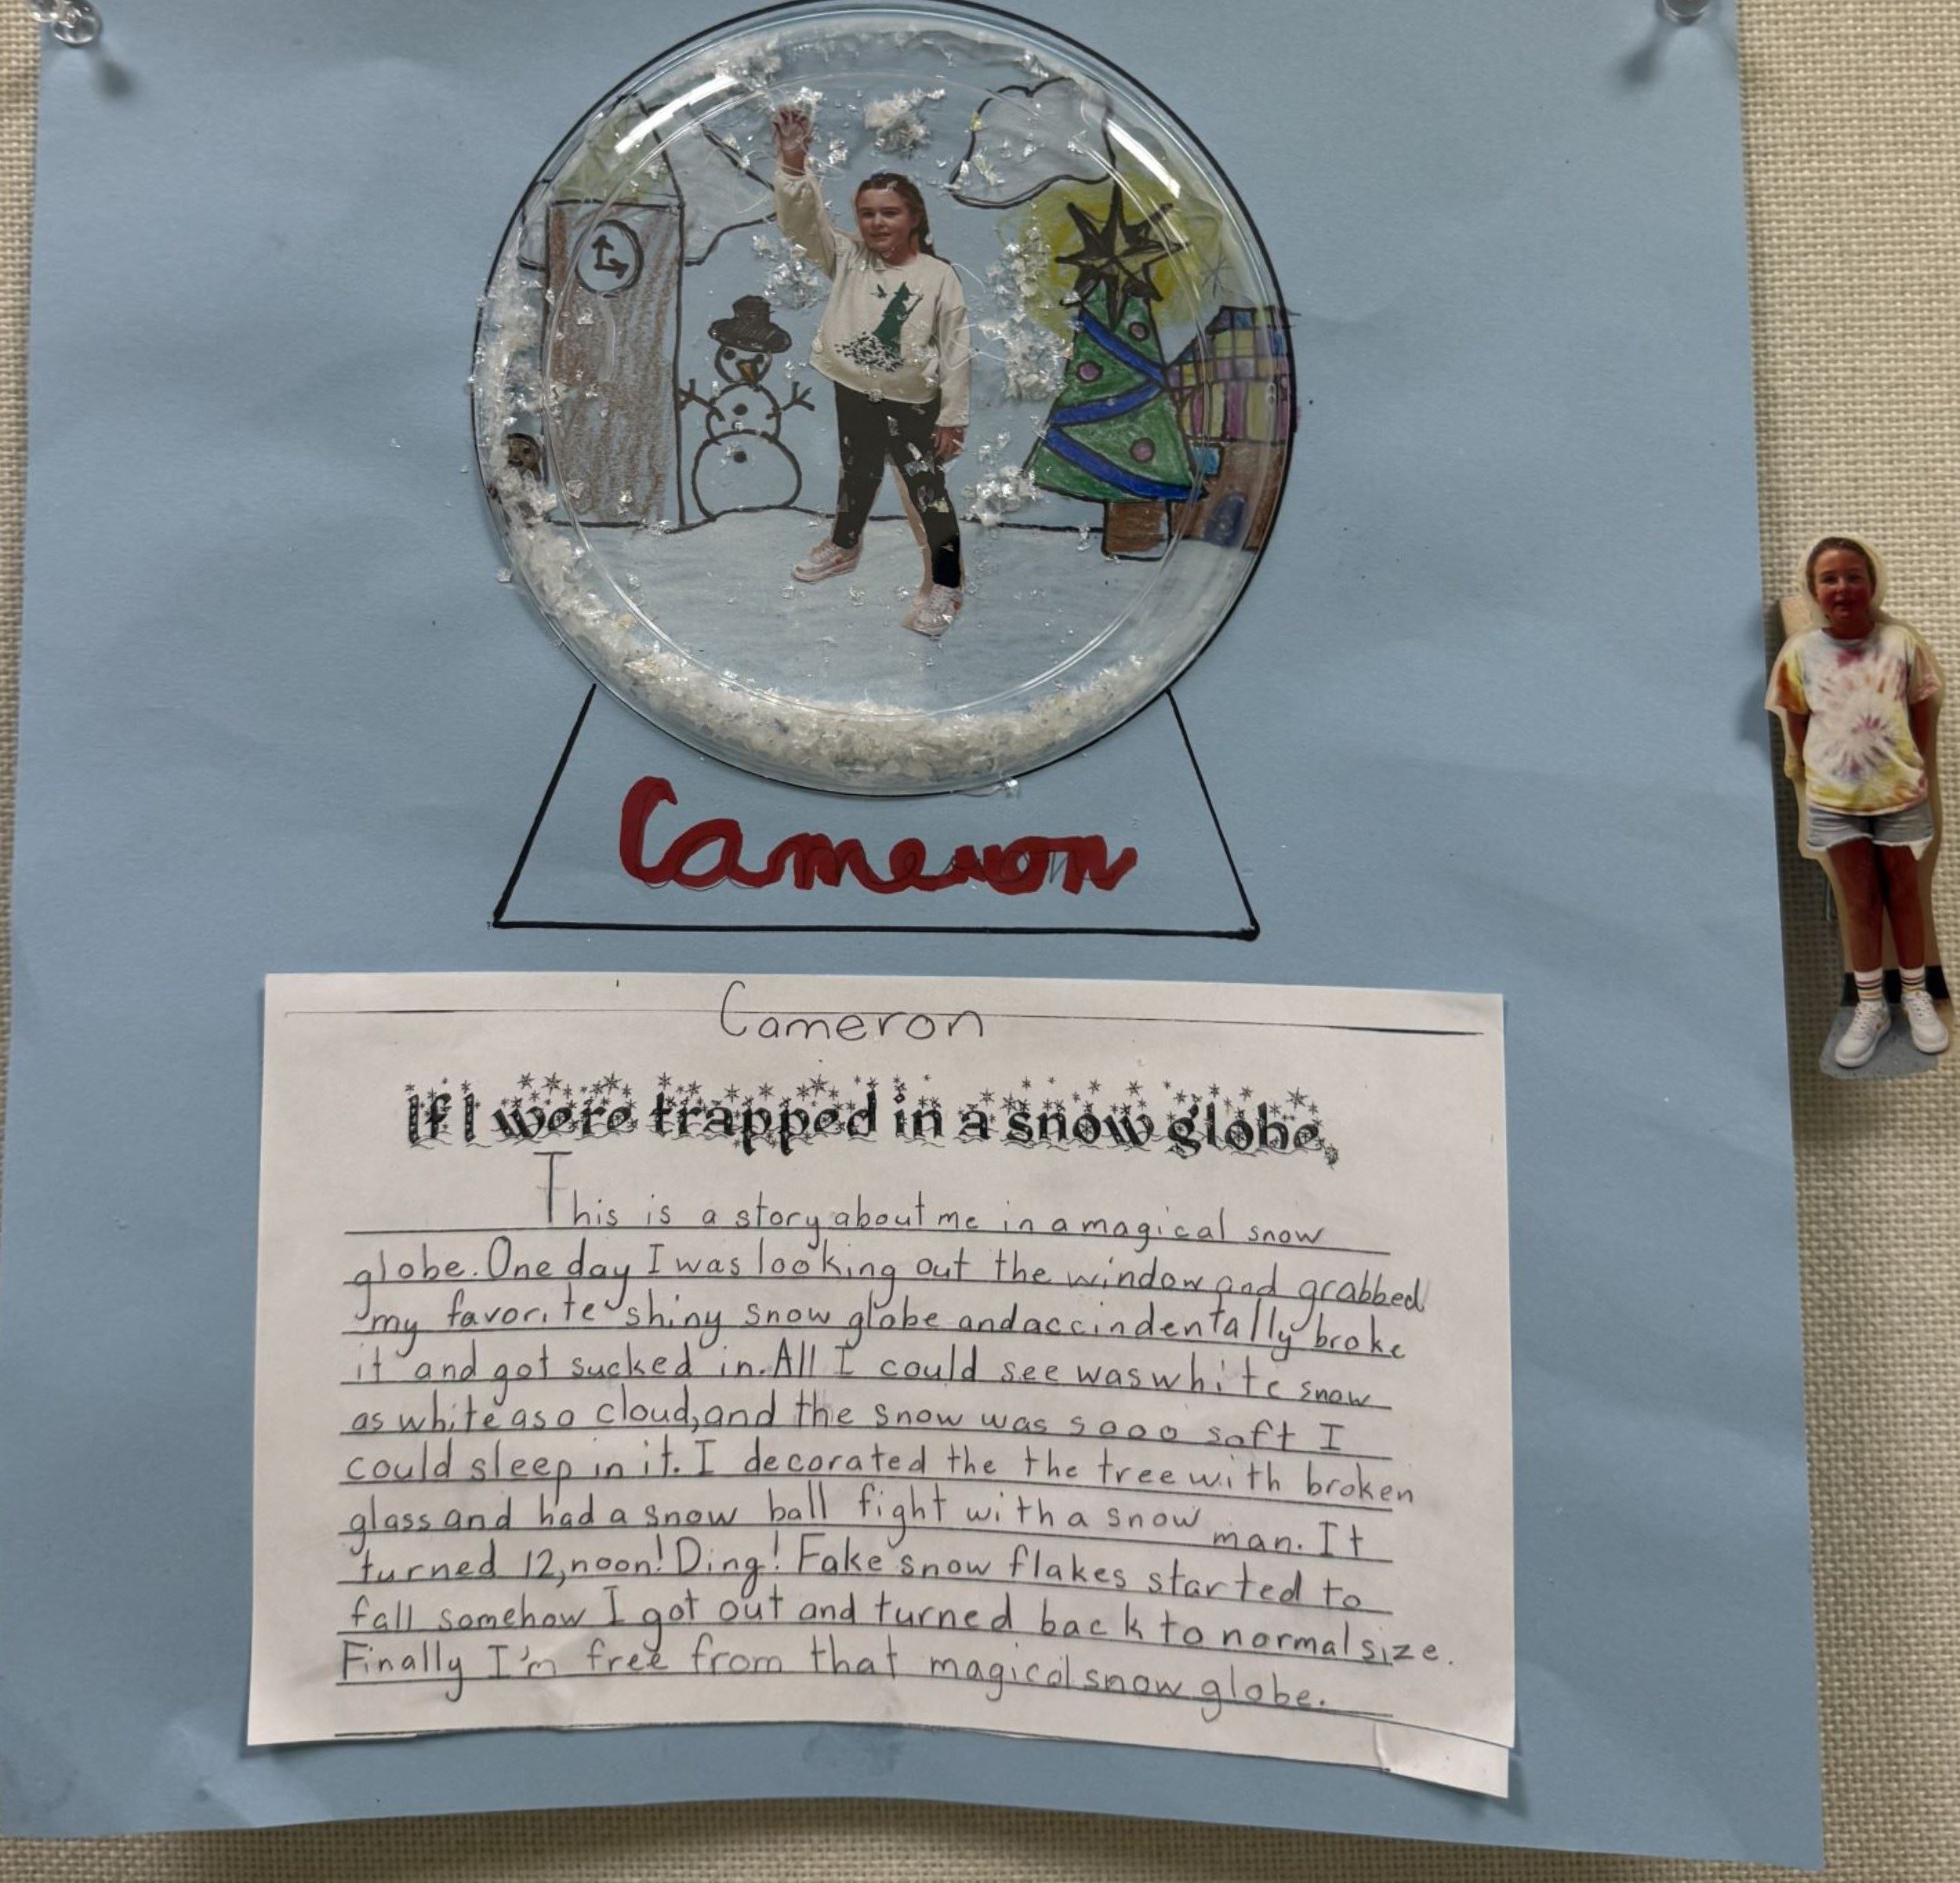 Cameron
Cameron
If I were trapped in a snow globe,
This is a story about me in a magical snow
globe. One day I was looking out the window and grabbed
my favorite shiny snow globe and accindentally broke
it and got sucked in. All I could see was white snow
as white as a cloud, and the snow was sooo soft I
could sleep in it. I decorated the the tree with broken
glass and had a snow ball fight with a snow man. It
turned 12, noon! Ding! Fake snow flakes started to
fall somehow I got out and turned back to normal size.
Finally I'm free from that magical snow globe.